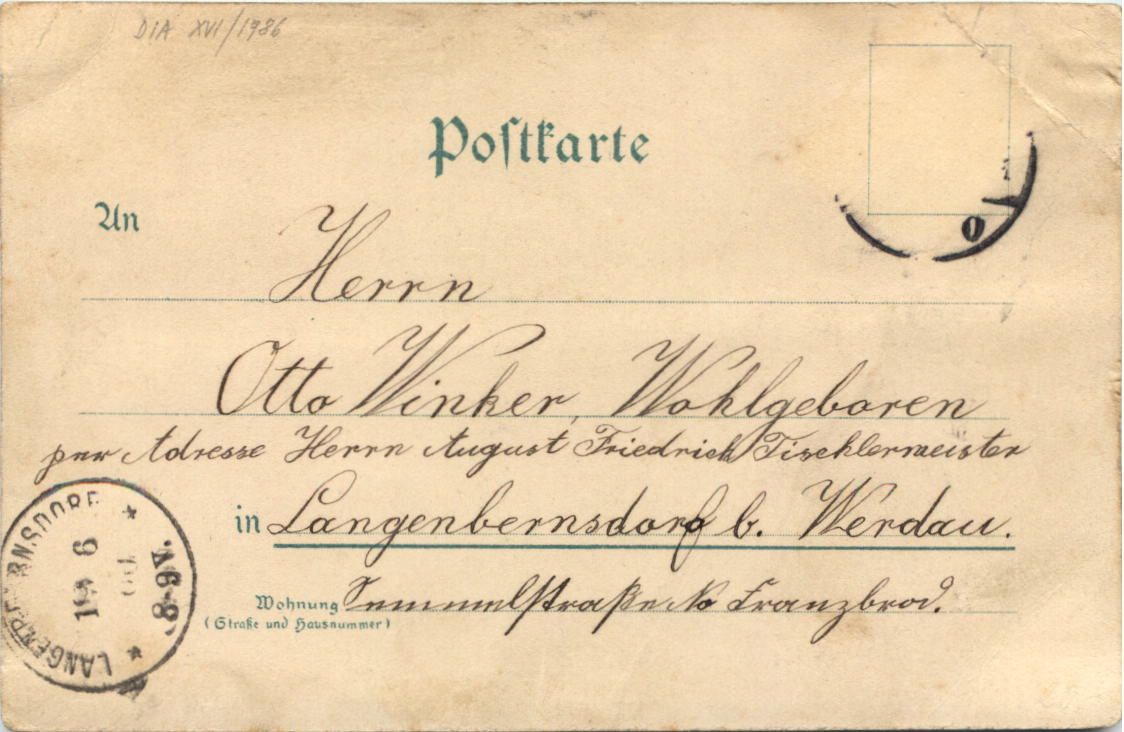 DIA XVI/1986
Postkarte
An
Herrn
Otto Winker, Wohlgeboren
per Adresse Herrn August Friedrich Tischlermeister
in Langenbernsdorf b. Werdau.
Wohnung Semmelstraße No Franzbrod.
(Straße und Hausnummer)
LANGENBERNSDORF
6
8-9V.
O